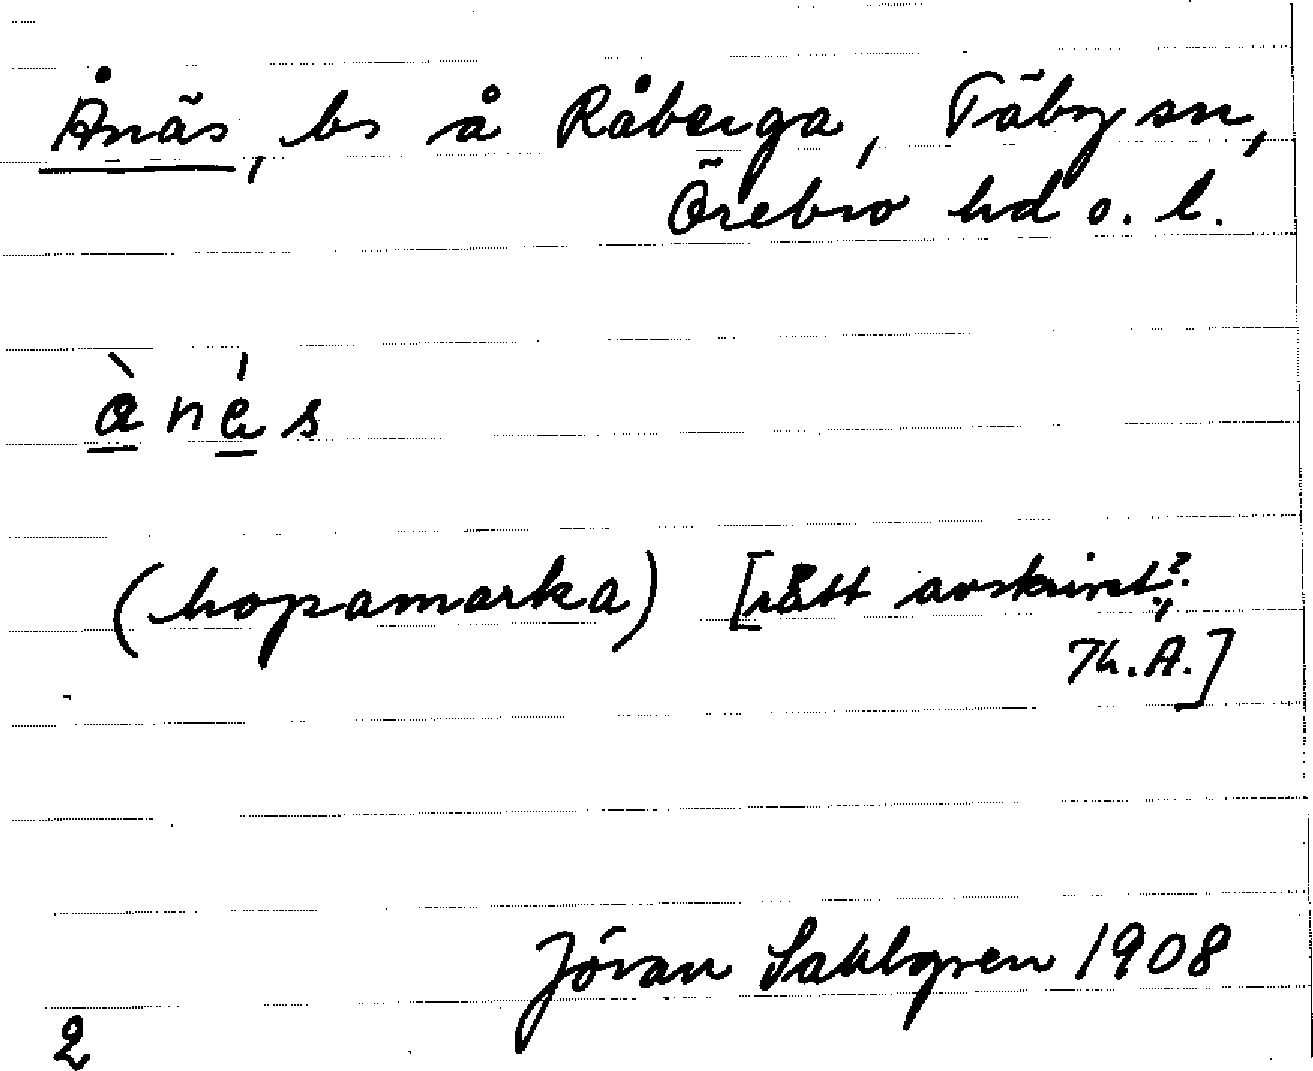 Ånäs, bs å Råberga, Täby sn,
Örebro hd ö. l.
ànés
(hopamarka) [rått avskrivet?,
Th. A.]
Jöran Sahlgren 1908
2